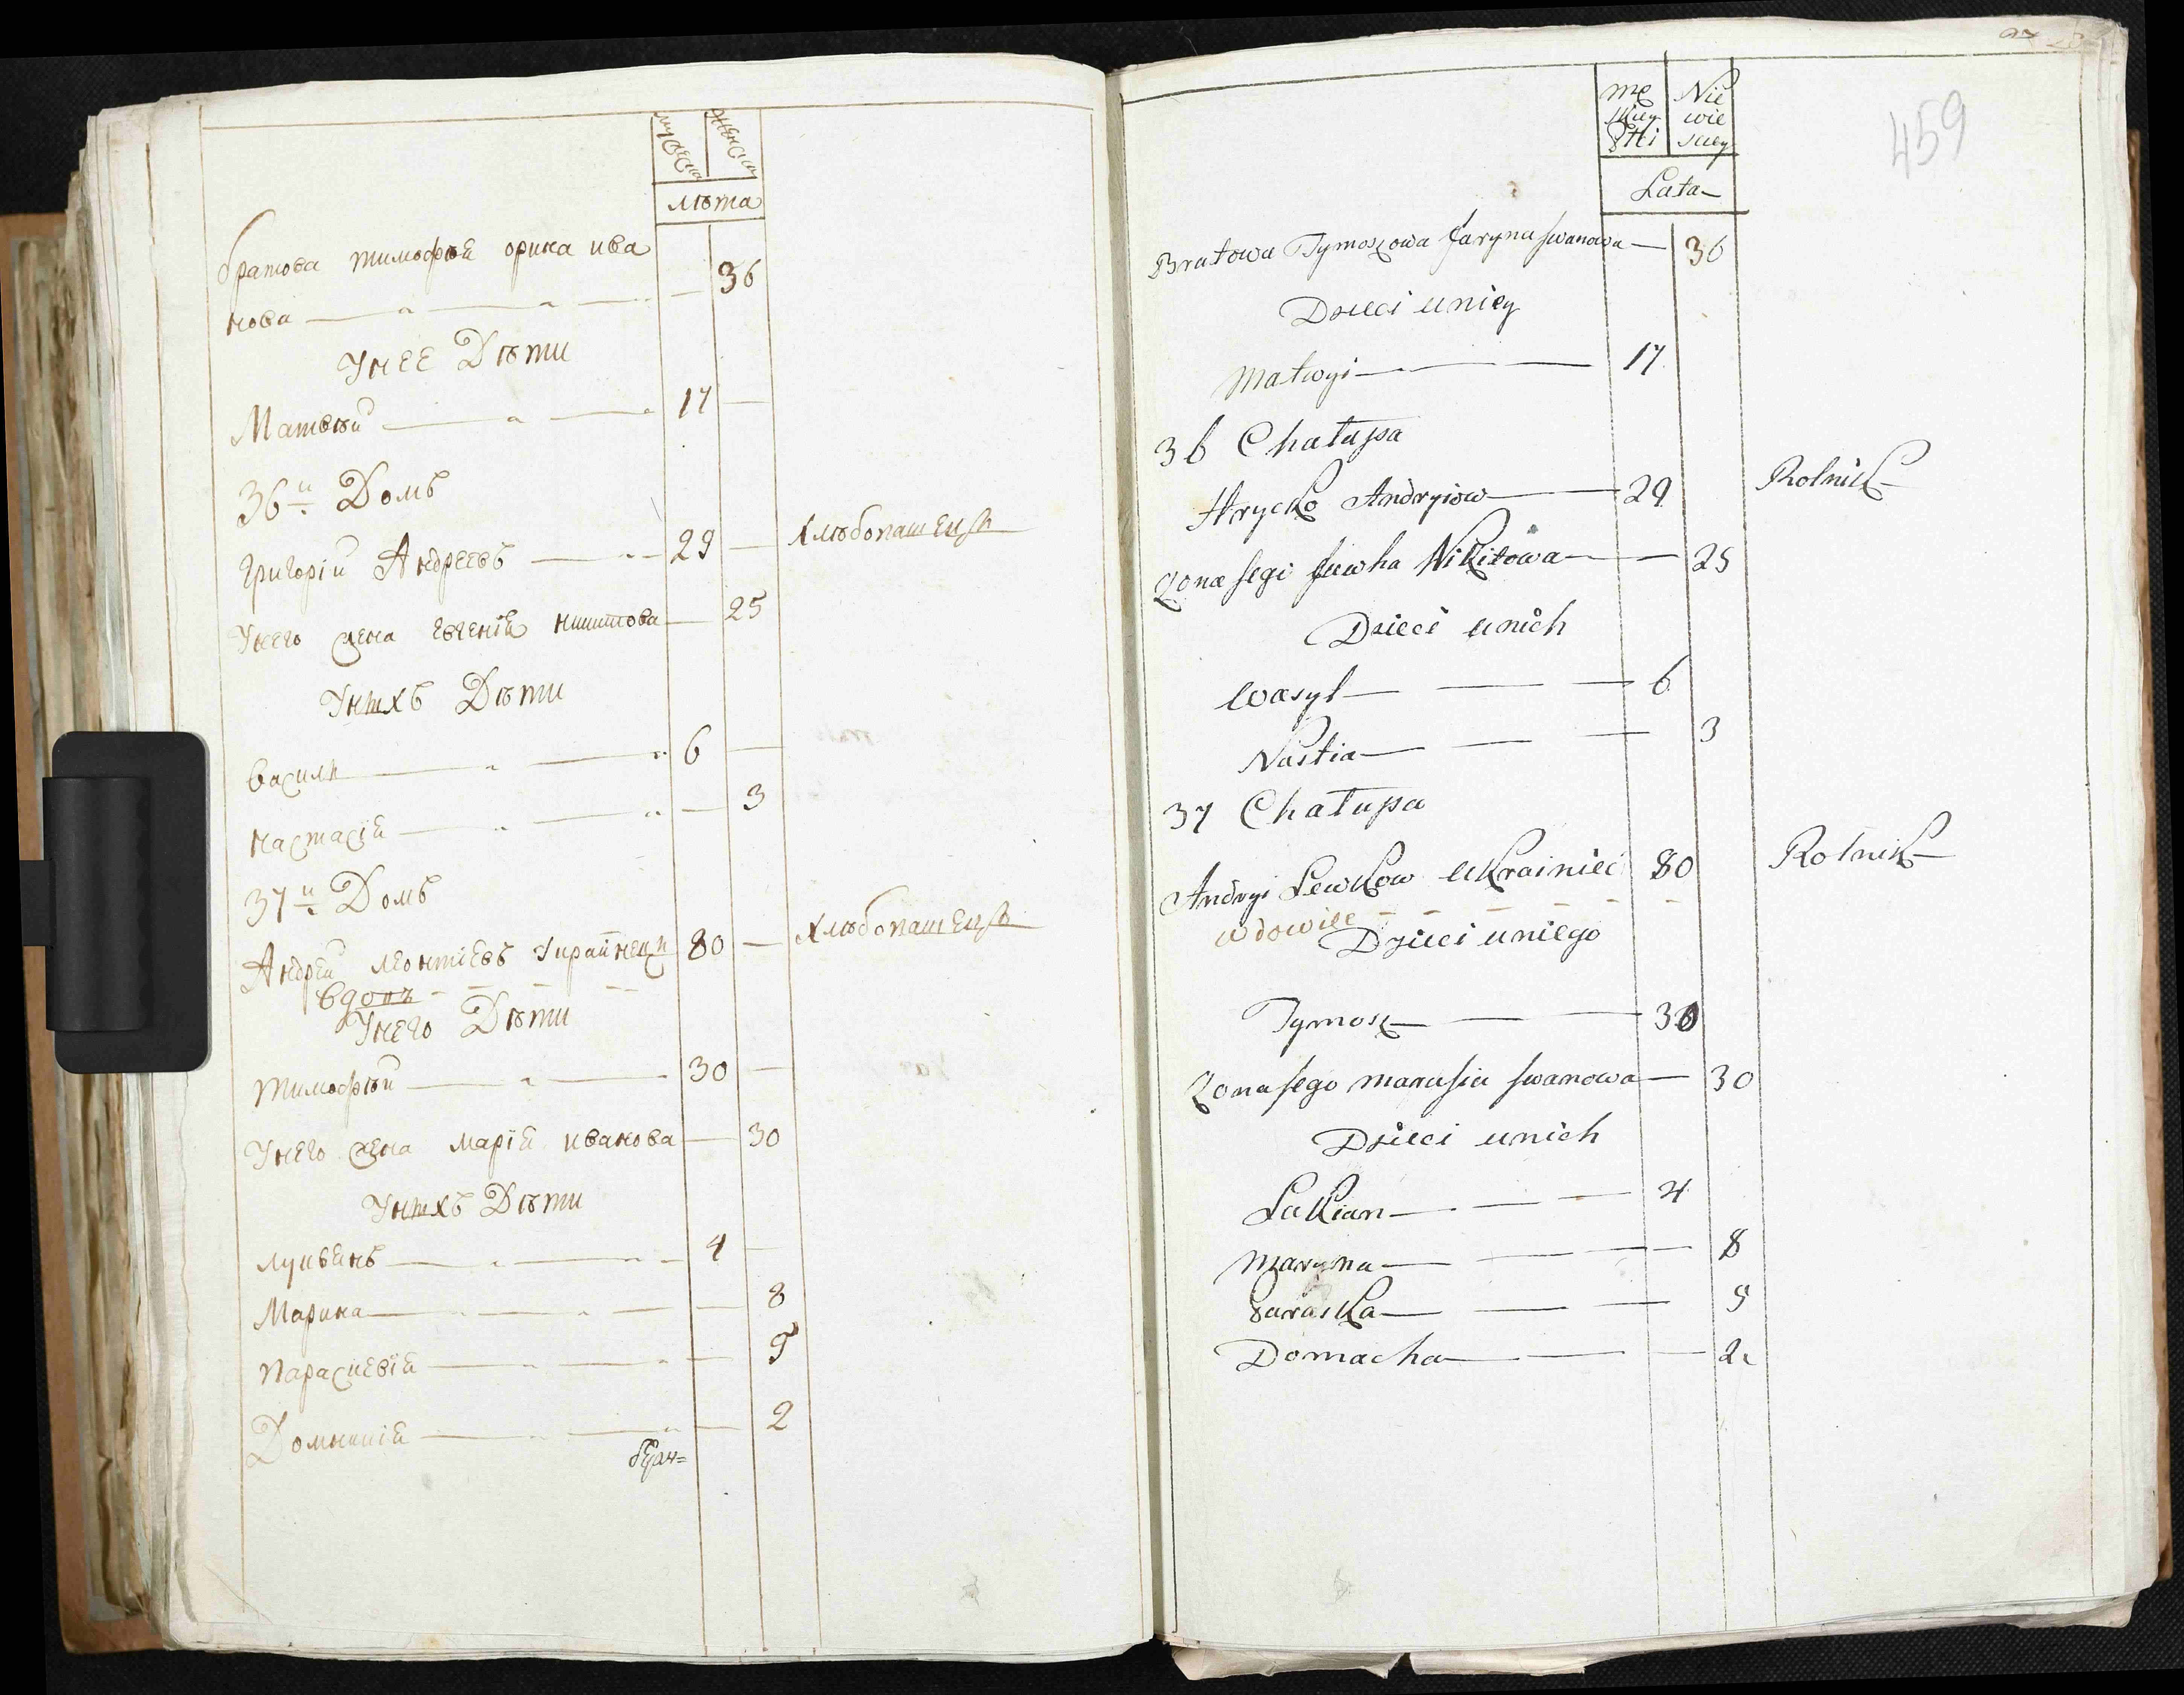 мужеска женска
лѣта
братова тимофѣя орина ива
нова 36
Унее Дѣти
Матвѣй 17
36й Домъ
Григорій Андреевъ 29 Хлѣбопашецъ
Унего жена евгенія никитова 25
Унихъ Дѣти
василь 6
настасія 3
37й Домъ
Андрей леонтіевъ Украинецъ 80 Хлѣбопашецъ
вдовъ
Унего Дѣти
тимофѣй 30
Унего жена марія иванова 30
Унихъ Дѣти
лукьянъ 4
Марина 8
парасцевія 5
Домникія 2
459
Lata
Bratowa Tymoszowa Jaryna Iwanowa 36
Dzieci u niey
Matwyi 17
36 Chałupa
Hrycko Andryiow 29 Rolnik
Zona Jego Juwha Nikitowa 25
Dzieci unich
Wasyl 6
Nastia 3
37 Chałupa
Andryi Lewkow Ukrainiec 80 Rolnik
wdowiec
Dzieci uniego
Tymosz 30
Zona Jego Marusia Iwanowa 30
Dzieci unich
Lukian 4
Maryna 8
Paraska 5
Domacha 2